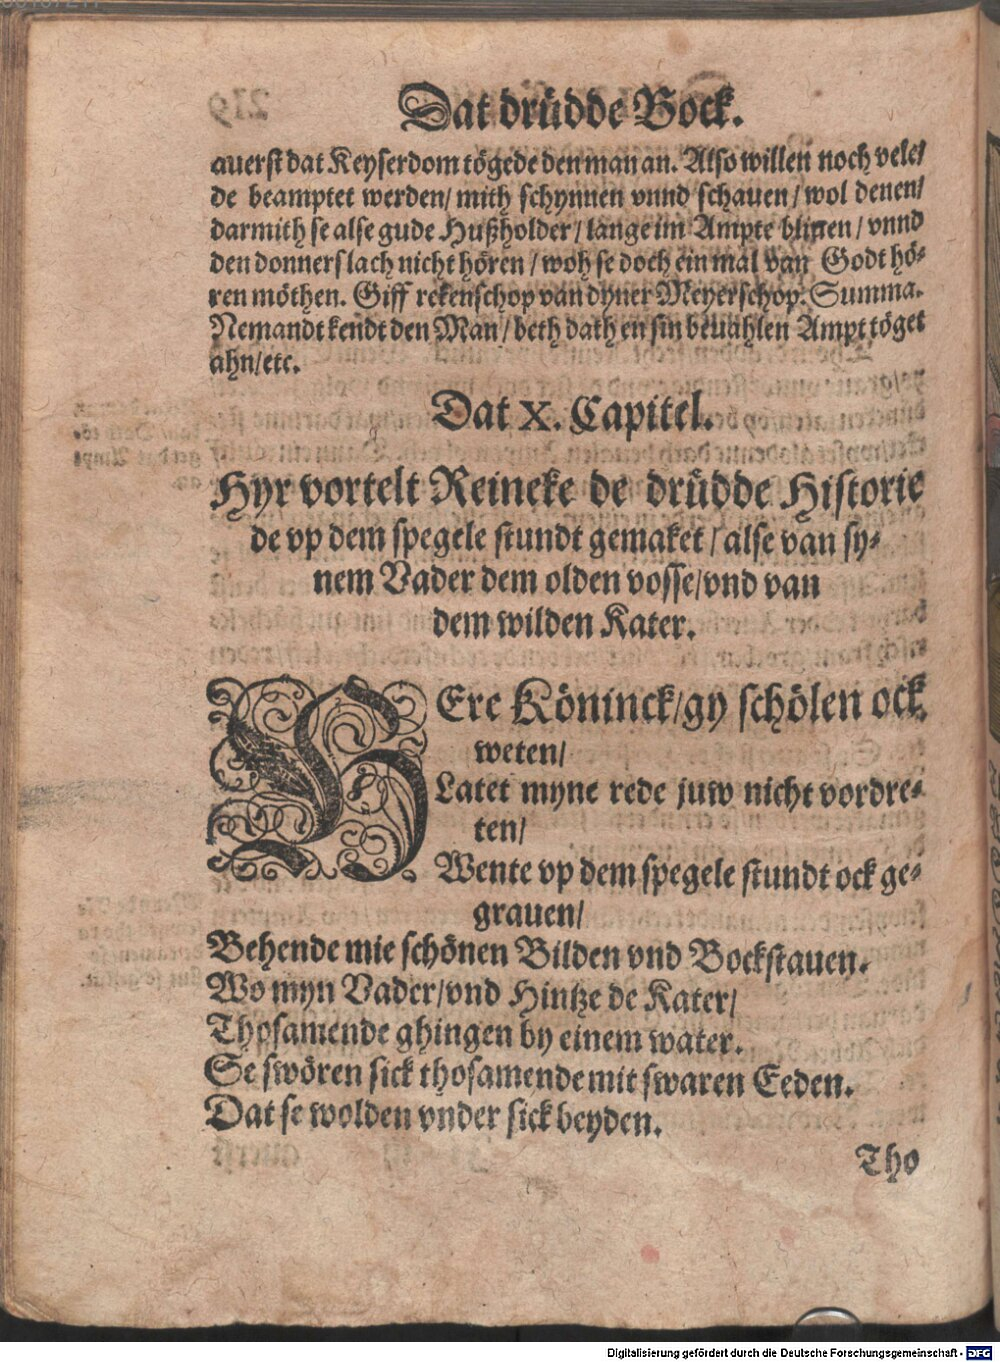 Dat drüdde Bock.
auerst dat Keyserdom tögede den man an. Also willen noch vele/
de beamptet werden/ mith schynnen vnnd schauen/ wol denen/
darmith se alse gude Hußholder/ lange im Ampte bliuen/ vnnd
den donnerslach nicht hören/ woh se doch ein mal van Godt hö-
ren möthen. Giff rekenschop van dyner Meyerschop. Summa.
Nemandt kendt den Man/ beth dath en sin beuahlen Ampt töget
ahn/etc.
Dat X. Capitel.
Hyr vortelt Reineke de drüdde Historie
de vp dem spegele stundt gemaket/ alse van sy-
nem Vader dem olden vosse/vnd van
dem wilden Kater.
HEre Köninck/gy schölen ock
weten/
Latet myne rede juw nicht vordre-
ten/
Wente vp dem spegele stundt ock ge-
grauen/
Behende mie schönen Bilden vnd Bockstauen.
Wo myn Vader/vnd Hintze de Kater/
Thosamende ghingen by einem water.
Se swören sick thosamende mit swaren Eeden.
Dat se wolden vnder sick beyden.
Tho
Digitalisierung gefördert durch die Deutsche Forschungsgemeinschaft - DFG